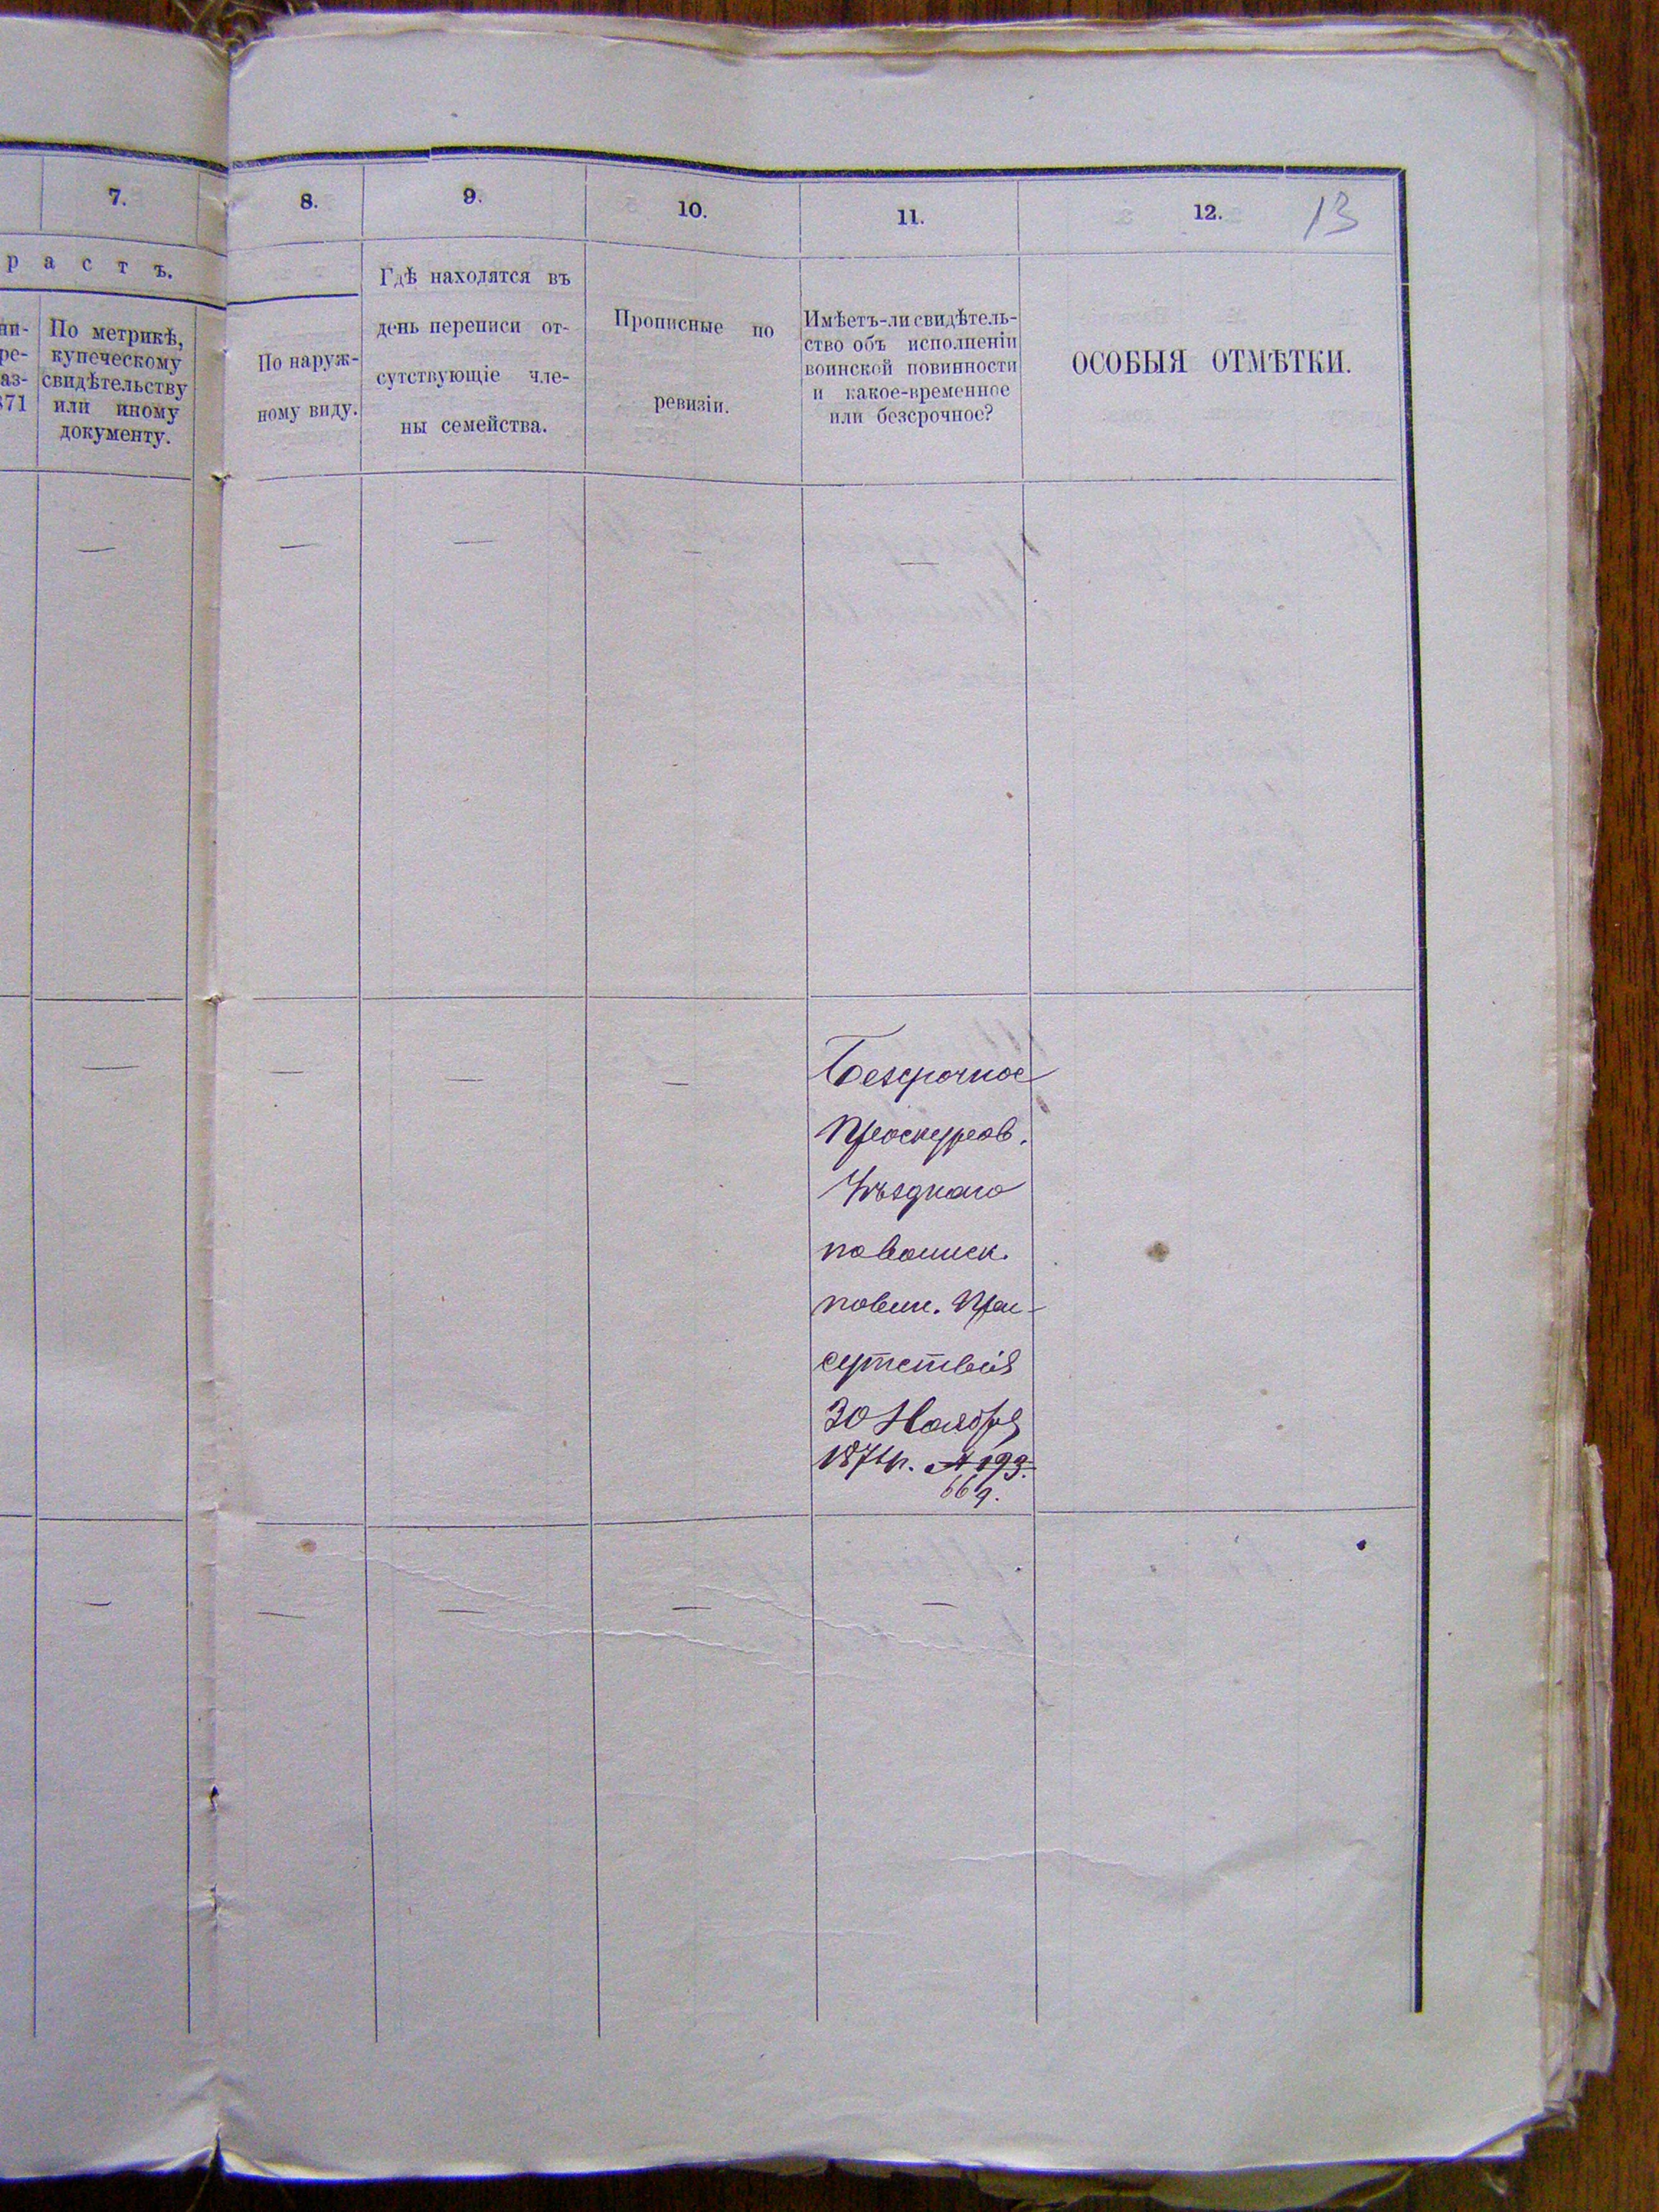 7.
8.
9.
10.
11.
12.
13
р а с т ъ.
По метрикѣ,
купеческому
свидѣтельству
или иному
документу.
По наруж-
ному виду.
Гдѣ находятся въ
день переписи от-
сутствующіе чле-
ны семейства.
Прописные по
ревизіи.
Имѣетъ-ли свидѣтель-
ство объ исполненіи
воинской повинности
и какое-временное
или безсрочное?
ОСОБЫЯ ОТМѢТКИ.
871
Безсрочное
Проскуров.
Уѣзднаго
по воинск.
повин. При-
сутствія
30 Ноября
669.